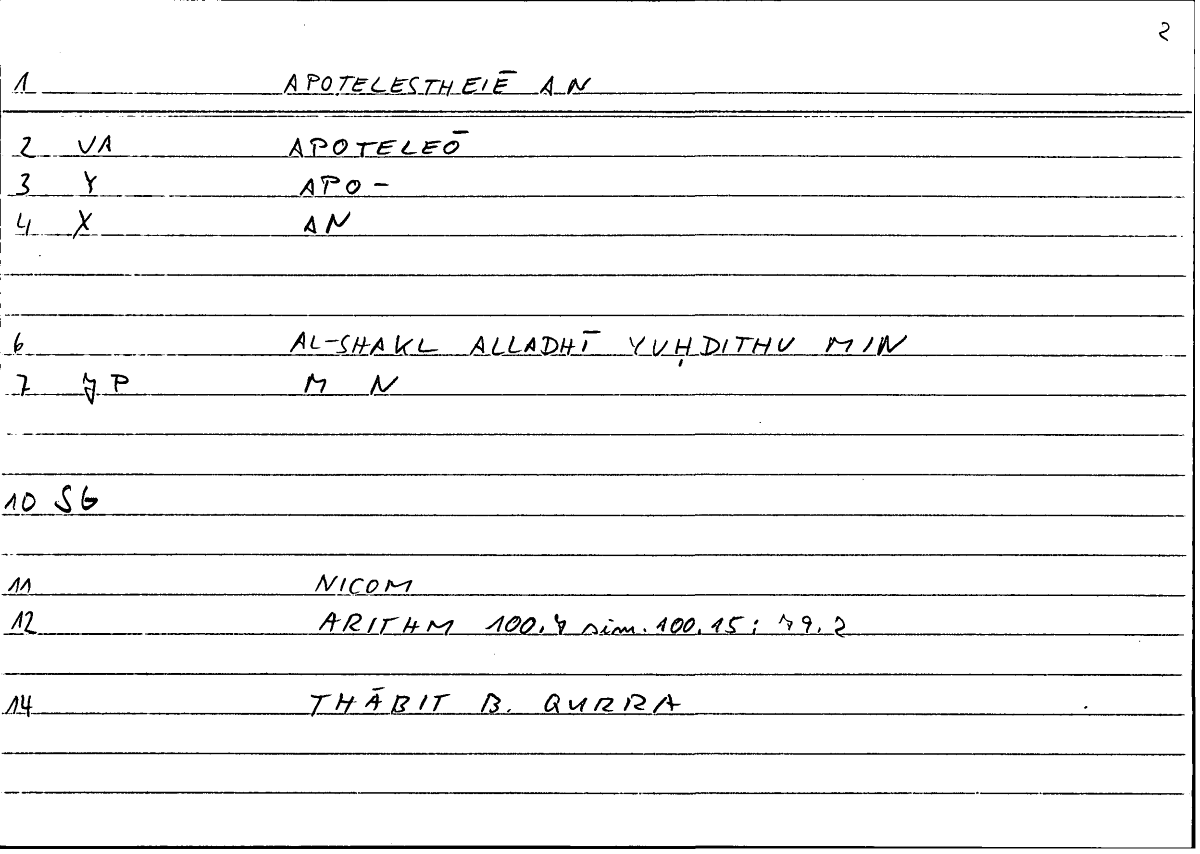 2
1 APOTELESTHEIĒ AN
2 VA APOTELEŌ
3 Y APO-
4 X AN
6 AL-SHAKL ALLADHĪ YUḤDITHU MIN
7 P M N
10 SG
11 NICOM
12 ARITHM 100.7 sim. 100.15; 79.2
14 THĀBIT B. QURRA